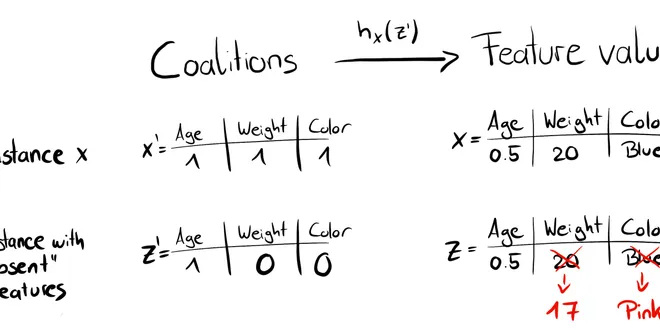 Coalitions hx(z') Feature valu
Age Weight Color Age Weight Colo
stance x x' = 1 1 1 x = 0.5 20 Blue
stance with Age Weight Color Age Weight Colo
bsent" z' = 1 0 0 z = 0.5 20 Blue
eatures 17 Pink